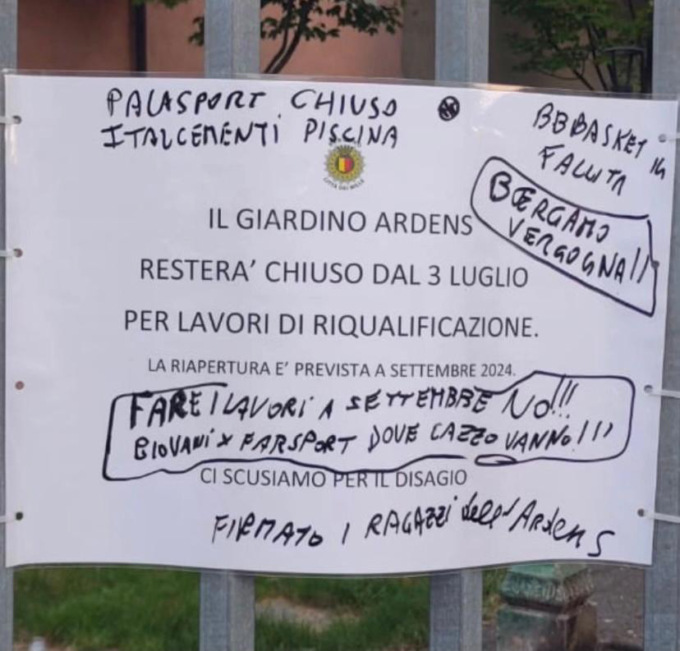 PALASPORT CHIUSO
ITALCEMENTI PISCINA
BBBASKET IN
FALLITA
BERGAMO
VERGOGNA!!
IL GIARDINO ARDENS
RESTERA' CHIUSO DAL 3 LUGLIO
PER LAVORI DI RIQUALIFICAZIONE.
LA RIAPERTURA E' PREVISTA A SETTEMBRE 2024.
FARE I LAVORI A SETTEMBRE NO!!!
GIOVANI X FARSPORT DOVE CAZZO VANNO!!!
CI SCUSIAMO PER IL DISAGIO
FIRMATO I RAGAZZI dell'Ardens